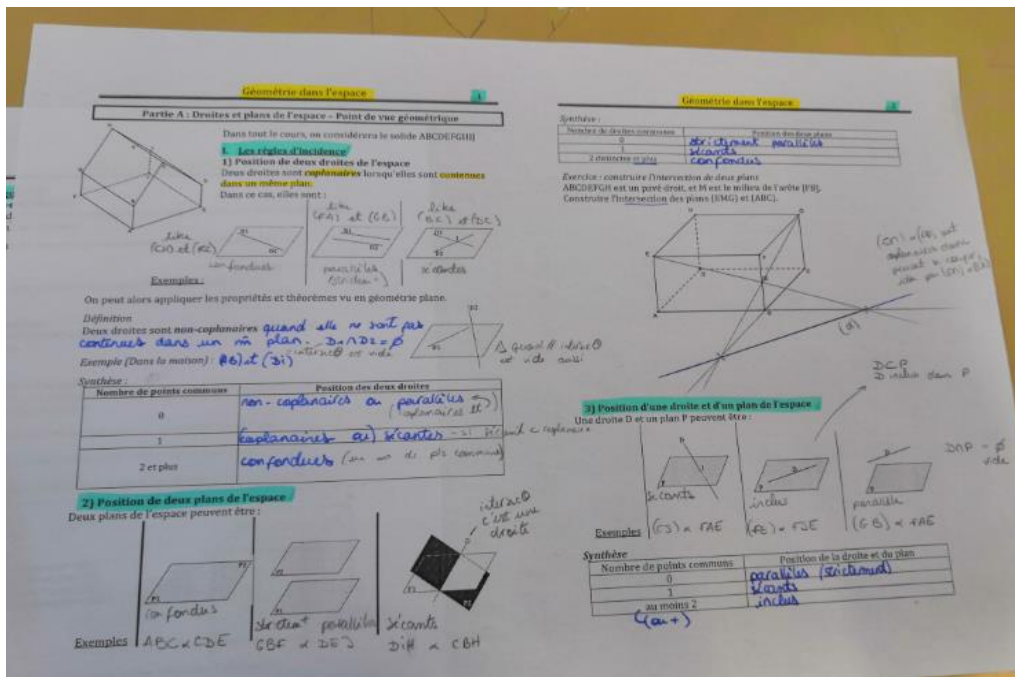 Géométrie dans l'espace
1
Partie A : Droites et plans de l'espace – Point de vue géométrique
Dans tout le cours, on considérera le solide ABCDEFGHIJ
I. Les règles d'incidence
1) Position de deux droites de l'espace
Deux droites sont coplanaires lorsqu'elles sont contenues
dans un même plan.
Dans ce cas, elles sont :
like
like
like
et (GB)
et (DC)
confondues
parallèles
sécantes
Exemples :
On peut alors appliquer les propriétés et théorèmes vu en géométrie plane.
Définition
Deux droites sont non-coplanaires quand elle ne sont pas
contenues dans un m̂ plan. D1∩D2=∅
Exemple (Dans la maison) : (AB) et (DI)
est vide aussi
Synthèse :
Nombre de points communs
Position des deux droites
0
non-coplanaires ou parallèles
(coplanaires et)
1
(coplanaires ou) sécantes - si sécant = coplanaire
2 et plus
confondues
2) Position de deux plans de l'espace
Deux plans de l'espace peuvent être :
intersec°
c'est une
droite
P2
P1
confondus
strict^t parallèles
sécants
Exemples
ABC & CDE
GBF & DEJ
DIH & CBH
Géométrie dans l'espace
2
Synthèse :
Nombre de droites communes
Position des deux plans
0
strictement parallèles
1
sécants
2 distinctes et plus
confondus
Exercice : construire l'intersection de deux plans
ABCDEFGH est un pavé droit, et M est le milieu de l'arête [FB].
Construire l'intersection des plans (EMG) et (ABC).
(d)
D⊂P
D inclus dans P
3) Position d'une droite et d'un plan de l'espace
Une droite D et un plan P peuvent être :
D∩P = ∅
vide
sécants
inclus
parallèle
Exemples
(FJ) & FAE
(FE) & FJE
(GB) & FAE
Synthèse
Nombre de points communs
Position de la droite et du plan
0
parallèles (strictement)
1
sécants
au moins 2
inclus
(ou +)